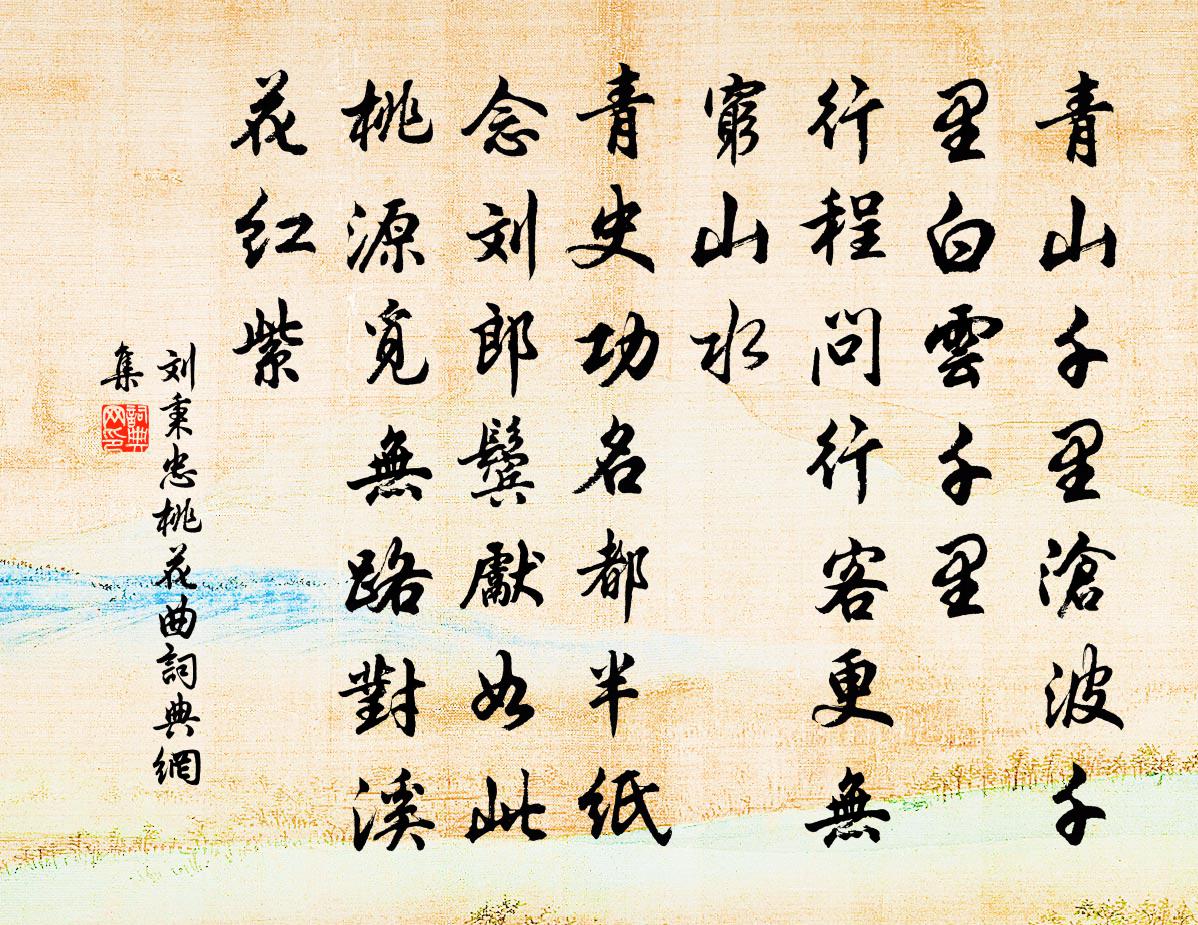 青山千里滄波千
里白雲千里
行程問行客更無
窮山水
青史功名都半紙
念刘郎鬓獻如此
桃源覓無路對溪
花红紫
刘秉忠桃花曲詞典網
集
詞典
网印